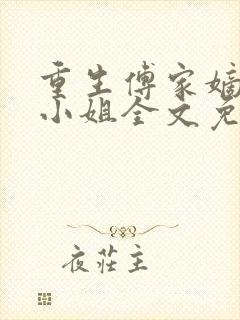 重生傅家嫡
小姐全文免
夜莊主